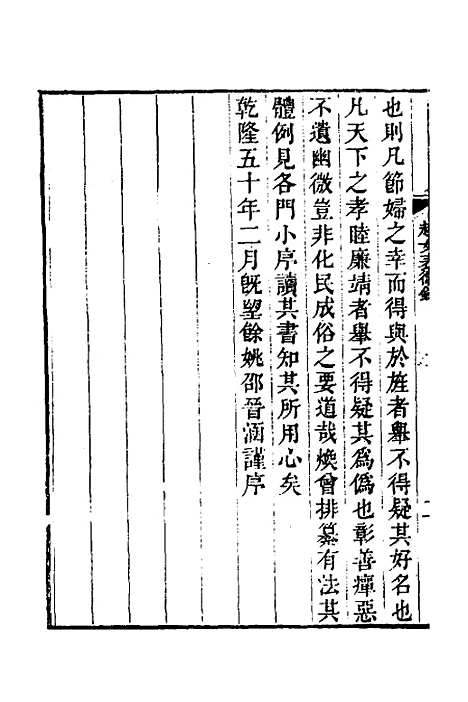 越女表微錄
也則凡節婦之幸而得與於旌者舉不得疑其好名也
凡天下之孝睦廉靖者舉不得疑其爲僞也彰善癉惡
不遺幽微豈非化民成俗之要道哉煥曾排纂有法其
體例見各門小序讀其書知其所用心矣
乾隆五十年二月旣望餘姚邵晉涵謹序